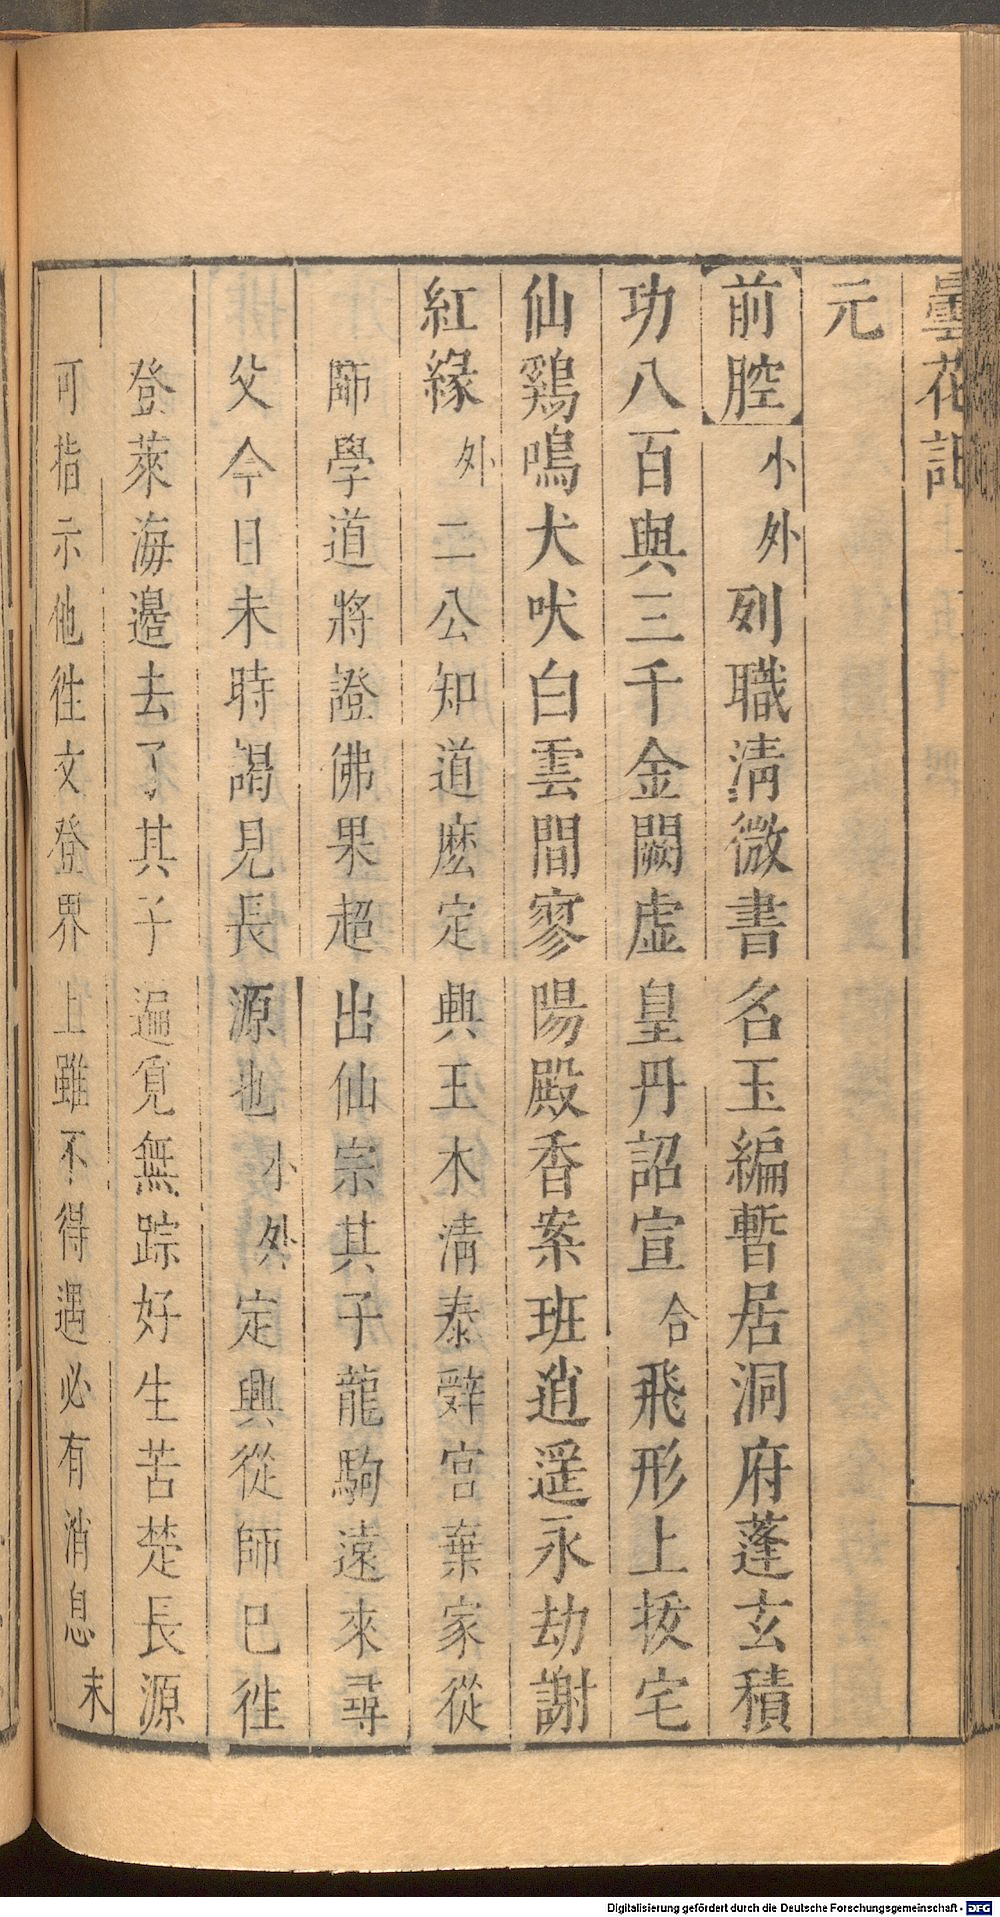 曇花記
元
前腔 小外 列職淸微書名玉編暫居洞府蓬玄積
功八百與三千金闕虛皇丹詔宣 合 飛形上拔宅
仙鷄鳴犬吠白雲間寥陽殿香案班逍遥永劫謝
紅緣 外 二公知道麽定興王木淸泰辤宮棄家從
師學道將證佛果超出仙宗其子龍駒遠來尋
父今日未時謁見長源也 小外 定興從師已徃
登萊海邊去了其子遍覓無踪好生苦楚長源
可指示他徃文登界上雖不得遇必有消息 末
Digitalisierung gefördert durch die Deutsche Forschungsgemeinschaft - DFG